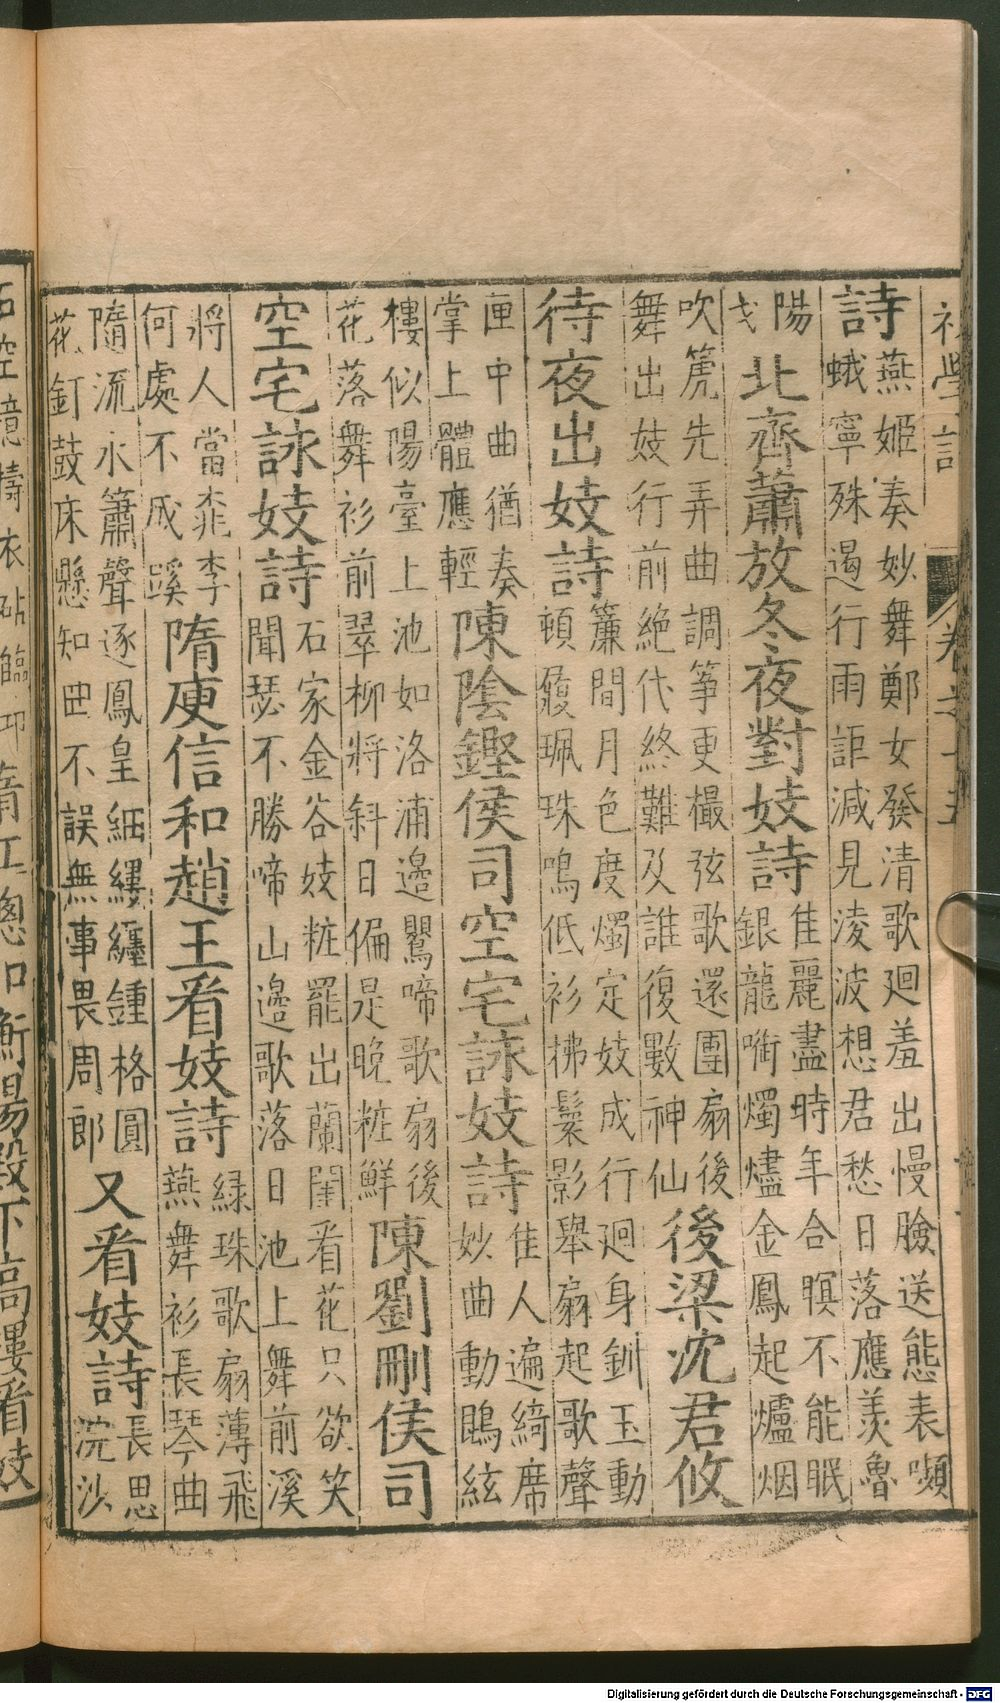 詩
燕姬奏妙舞鄭女發清歌廻羞出慢臉送態表嚬
蛾寧殊遏行雨詎減見淩波想君愁日落應羨魯
陽
戈
北齊蕭放冬夜對妓詩
佳麗盡時年合暝不能眠
銀龍衘燭燼金鳳起爐烟
吹箎先弄曲調筝更撮弦歌還團扇後
舞出妓行前絶代終難及誰復數神仙
後梁沈君攸
待夜出妓詩
簾間月色度燭定妓成行廻身釧玉動
頓履珮珠鳴低衫拂鬟影舉扇起歌聲
匣中曲猶奏
掌上體應輕
陳陰鏗侯司空宅詠妓詩
佳人遍綺席
妙曲動鵾絃
樓似陽臺上池如洛浦邊鸎啼歌扇後
花落舞衫前翠柳將斜日偏是晚粧鮮
陳劉刪侯司
空宅詠妓詩
石家金谷妓粧罷出蘭閨看花只欲笑
聞瑟不勝啼山邊歌落日池上舞前溪
將人當桃李
何處不成蹊
隋庾信和趙王看妓詩
綠珠歌扇薄飛
燕舞衫長琴曲
隨流水簫聲逐鳳皇細縷纏鍾格圓
花釘鼓床懸知曲不誤無事畏周郎
又看妓詩
長思
浣沙
石空憶擣衣砧臨邛
隋江總和衡陽殿下高樓看妓
Digitalisierung gefördert durch die Deutsche Forschungsgemeinschaft - DFG